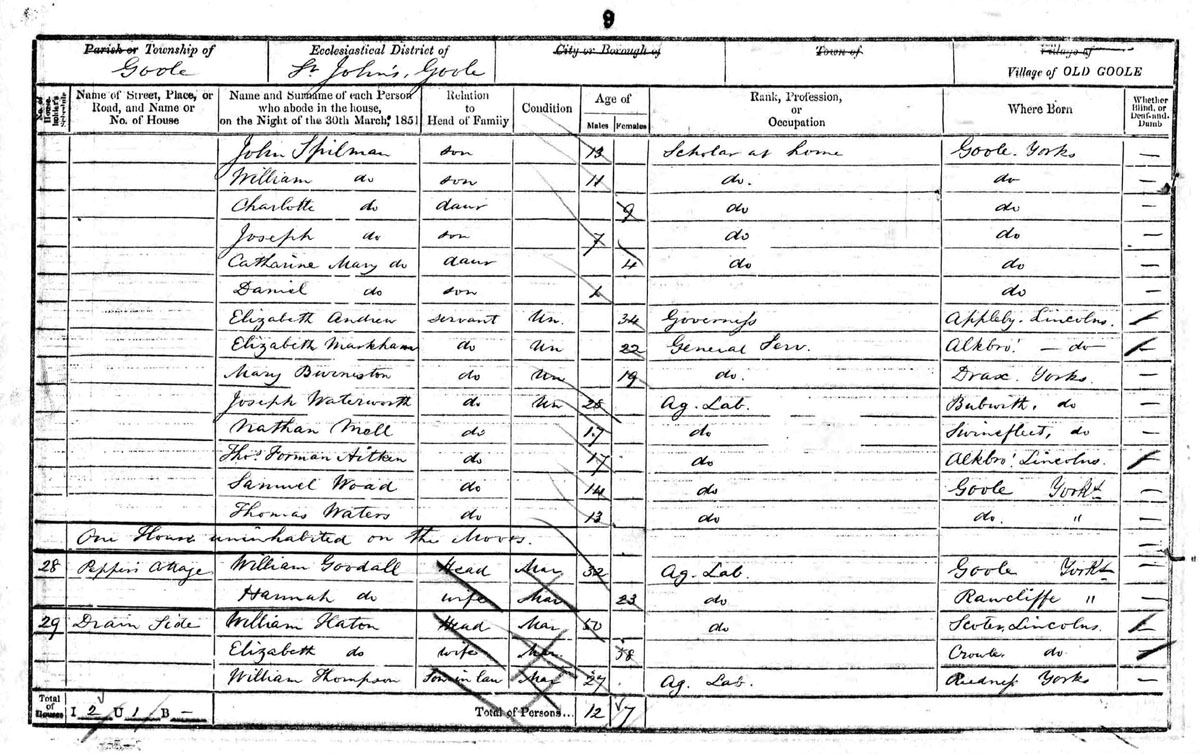 9
Parish or Township of Ecclesiastical District of City or Borough of Town of Village of
Goole St John's, Goole Village of OLD GOOLE
No. of House-holder's Schedule Name of Street, Place, or Road, and Name or No. of House Name and Surname of each Person who abode in the house, on the Night of the 30th March, 1851 Relation to Head of Family Condition Age of Males Females Rank, Profession, or Occupation Where Born Whether Blind, or Deaf-and-Dumb
John Spilman son 13 Scholar at home Goole. Yorks —
William do son 11 do. do —
Charlotte do daur 9 do do —
Joseph do son 7 do do —
Catharine Mary do daur 4 do do —
Daniel do son do —
Elizabeth Andrew servant Un. 34 Governess Appleby. Lincolns.
Elizabeth Markham do Un 22 General Serv. Alkbro' — do —
Mary Burniston do Un 19 do. Drax. Yorks. —
Joseph Waterworth do Un 28 Ag. Lab. Bubwith, do —
Nathan Mell do 17 do Swinefleet, do —
Thos. Forman Aitken do 17 do Alkbro' Lincolns.
Samuel Woad do 14 do Goole Yorks —
Thomas Waters do 13 do do. " —
One House uninhabited on the Moors. —
28 Cottage William Goodall Head Mar 32 Ag. Lab. Goole Yorks —
Hannah do wife Mar 23 do Rawcliffe " —
29 Drain Side William Head Mar 50 do Lincolns.
Elizabeth do wife Mar. 58 Crowle do
William Thompson Son in law Mar 27 Ag. Lab. Reedness Yorks —
Total of Houses I 2 U 1 B — Total of Persons... 12 7